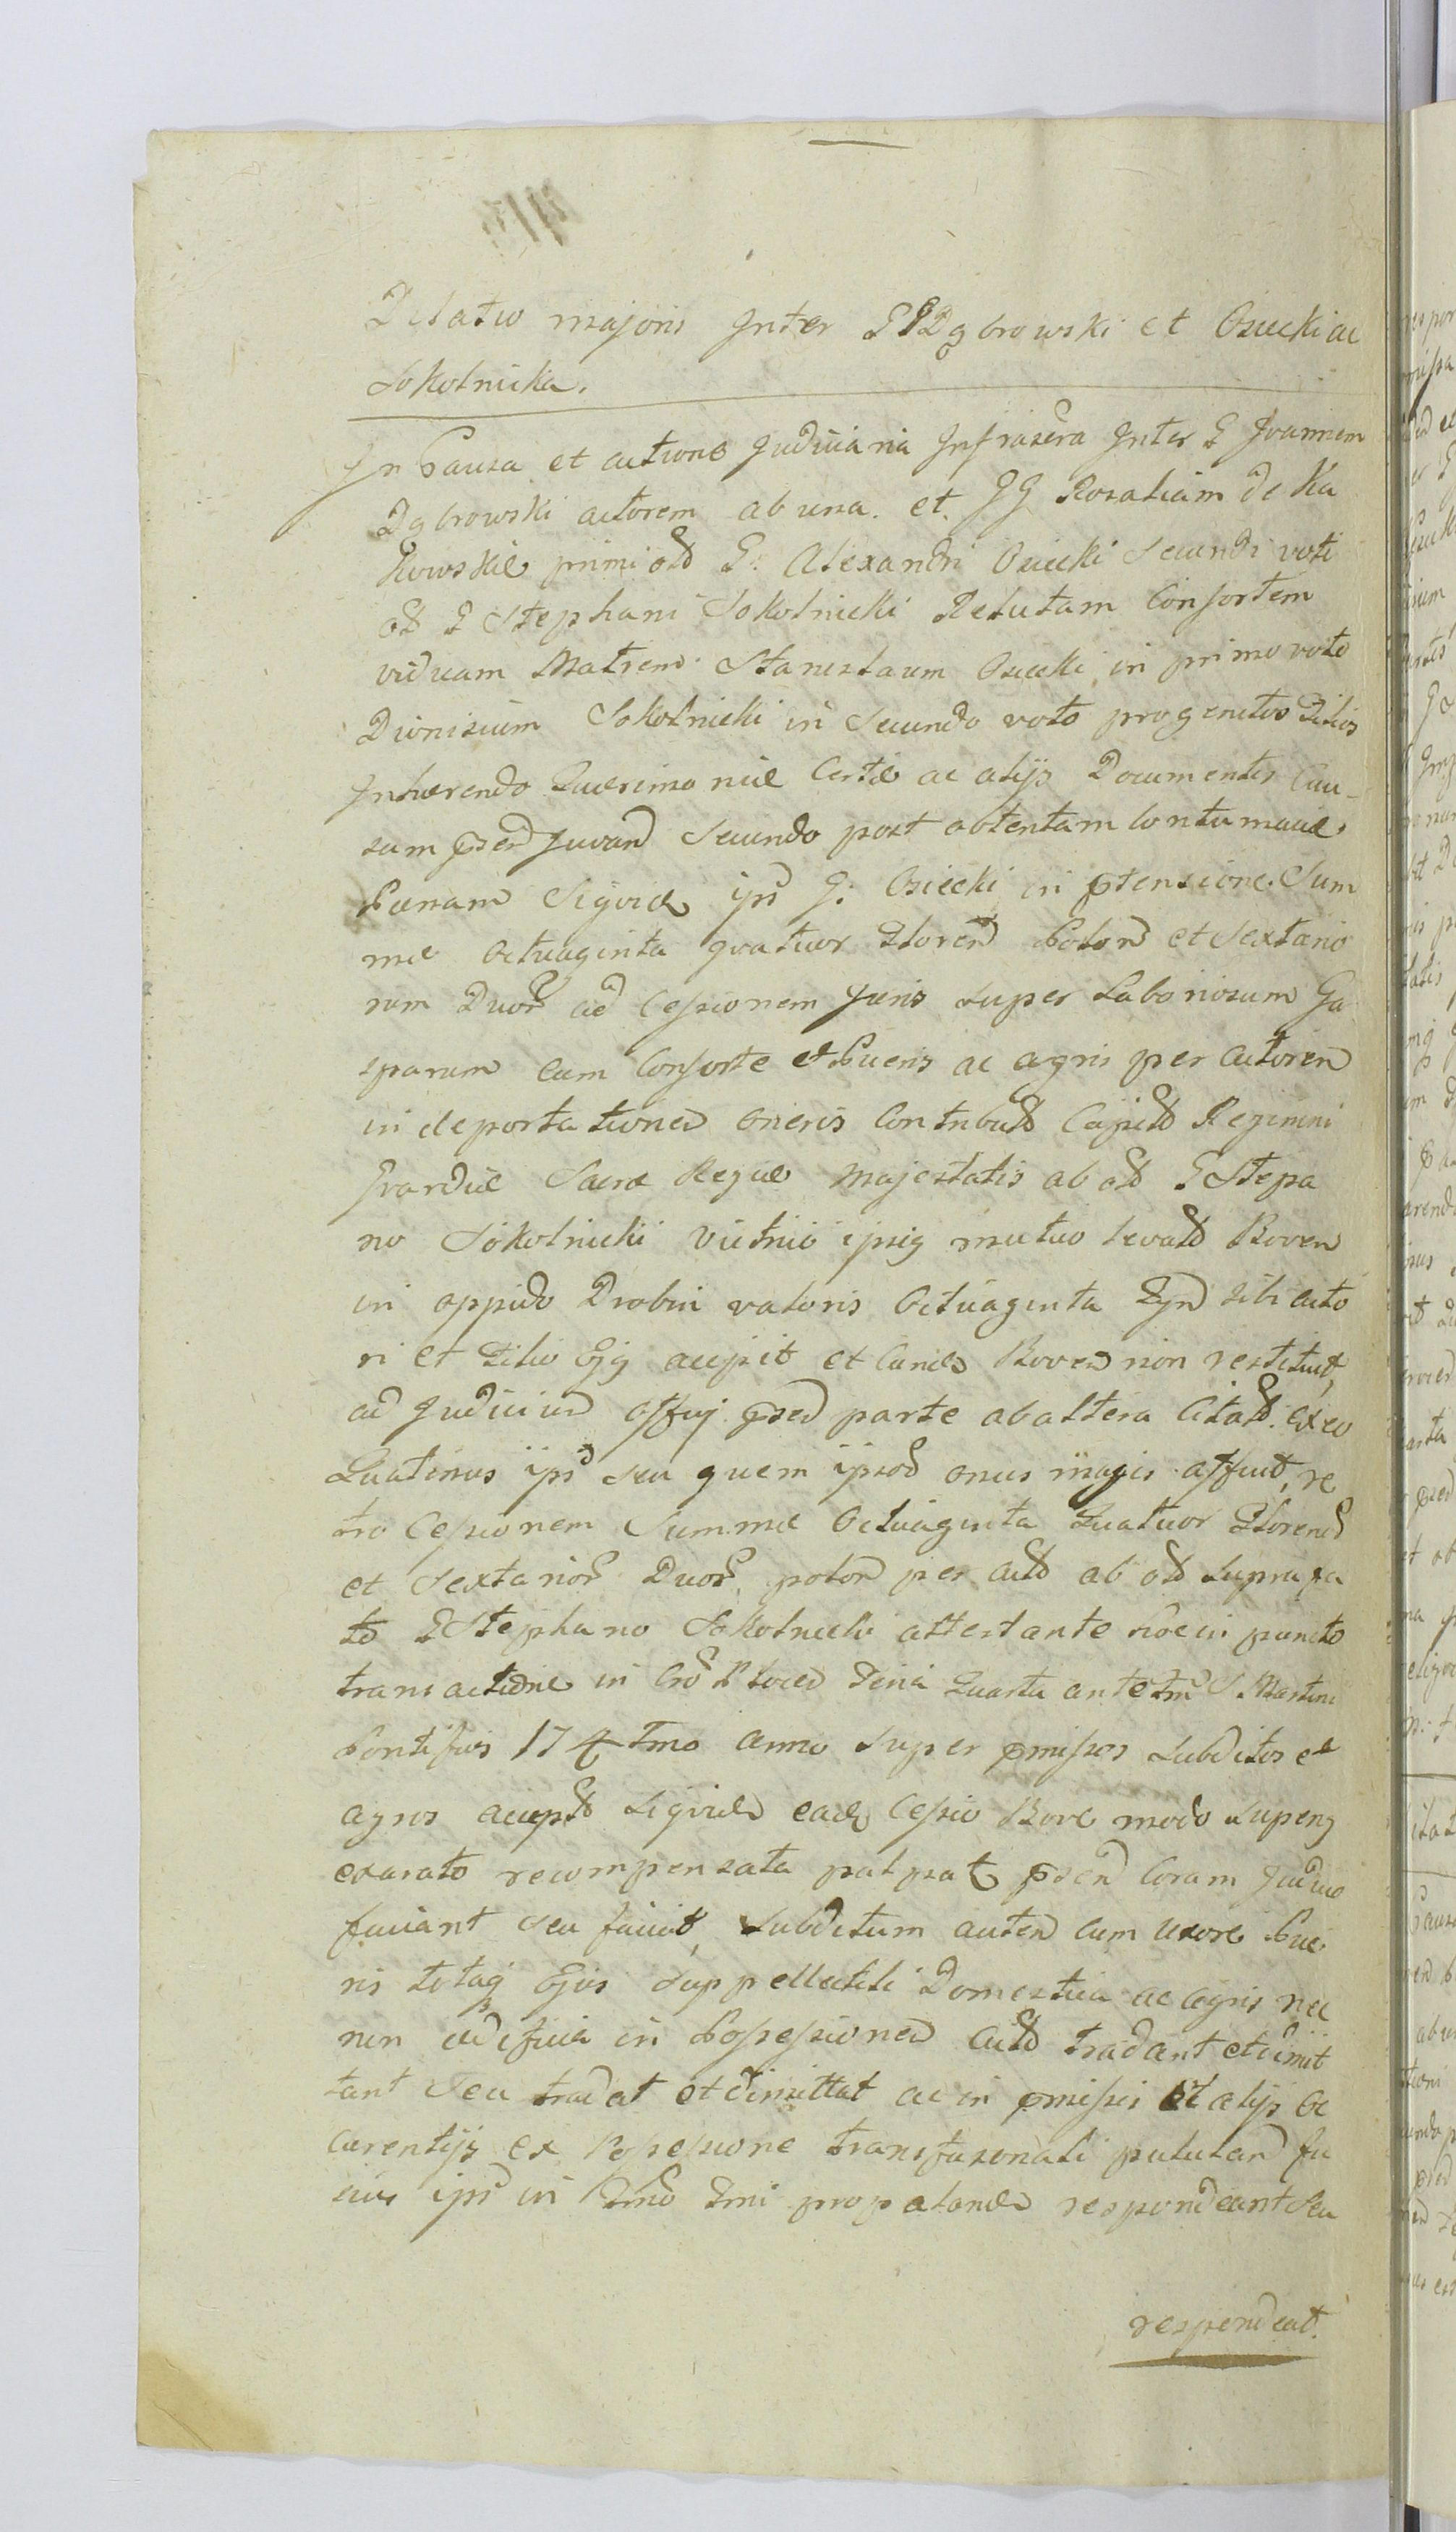 Dilatio majoris Inter GGDąbrowski et Osiecki ac
Sokolnicka.
In Causa et actione Judiciaria Infrascra Inter G Joannem
Dąbrowski actorem ab una. et. GG Rosaliam de Ka
kowskie primi old G: Alexandri Osiecki Secundi voti
old G Stephani Sokolnicki Relictam Consortem
viduam Matrem Stanislaum Osiecki in primo voto
Dionisium Sokolnicki in Secundo voto progenitos Filios
Inhærendo Querimoniæ Certæ ac alijs Documentis Cau-
sam pseñ Juvand Secundo post obtentam Contumaciæ
Pœnam ips G: Osiecki in ptensione Sum
mæ Octuaginta qvatuor Floreñ Poloñ et Sextario
rum Duor ad Cessionem Juris Super Laboriosum Ga
sparum cum Consorte et Pueris ac agris per actorem
in deportationem oneris Contribuld Capitld Regimini
Gvardiæ Sacræ Regiæ Majestatis ab old G Stepa
no Sokolnicki Victrico ipsig mutuo levatd Bovem
in oppido Drobin valoris Octuaginta Tyn sibi acto
ri et Filio Ejg accepit et Eund Bovem non restituit,
ad Judicium Offij psed parte ab altera Citatd. Ex eo
Quatinus ips seu quem ipsod onus magis afficit, re
tro Cessionem Summæ Octuaginta Quatuor Floreñ
et Sextarior Duor, poloñ per actd ab old Suprafa
to G Stephano Sokolnicki attestante in puncto
transactione in Cro Plocen Feria Quarta ante fm S Martini
Pontificis 174 tmo anno Super pmissos Subditos et
agros acceptd eaq Cessio Bove modo Superiq
exarato recompensata pseñ Coram Judicio
faciant seu faciat, Subditum autem cum Uxore Pue
ris totaq Ejus Suppellectili Domestica ac agris nec
non ædificia in Possessionem actd tradant et dimit
tant Seu tradat et dimittat ac in pmissis et alijs Oc
curentijs ex Possessione
ips in Tmo Tmi respondeant Seu
respondeat.